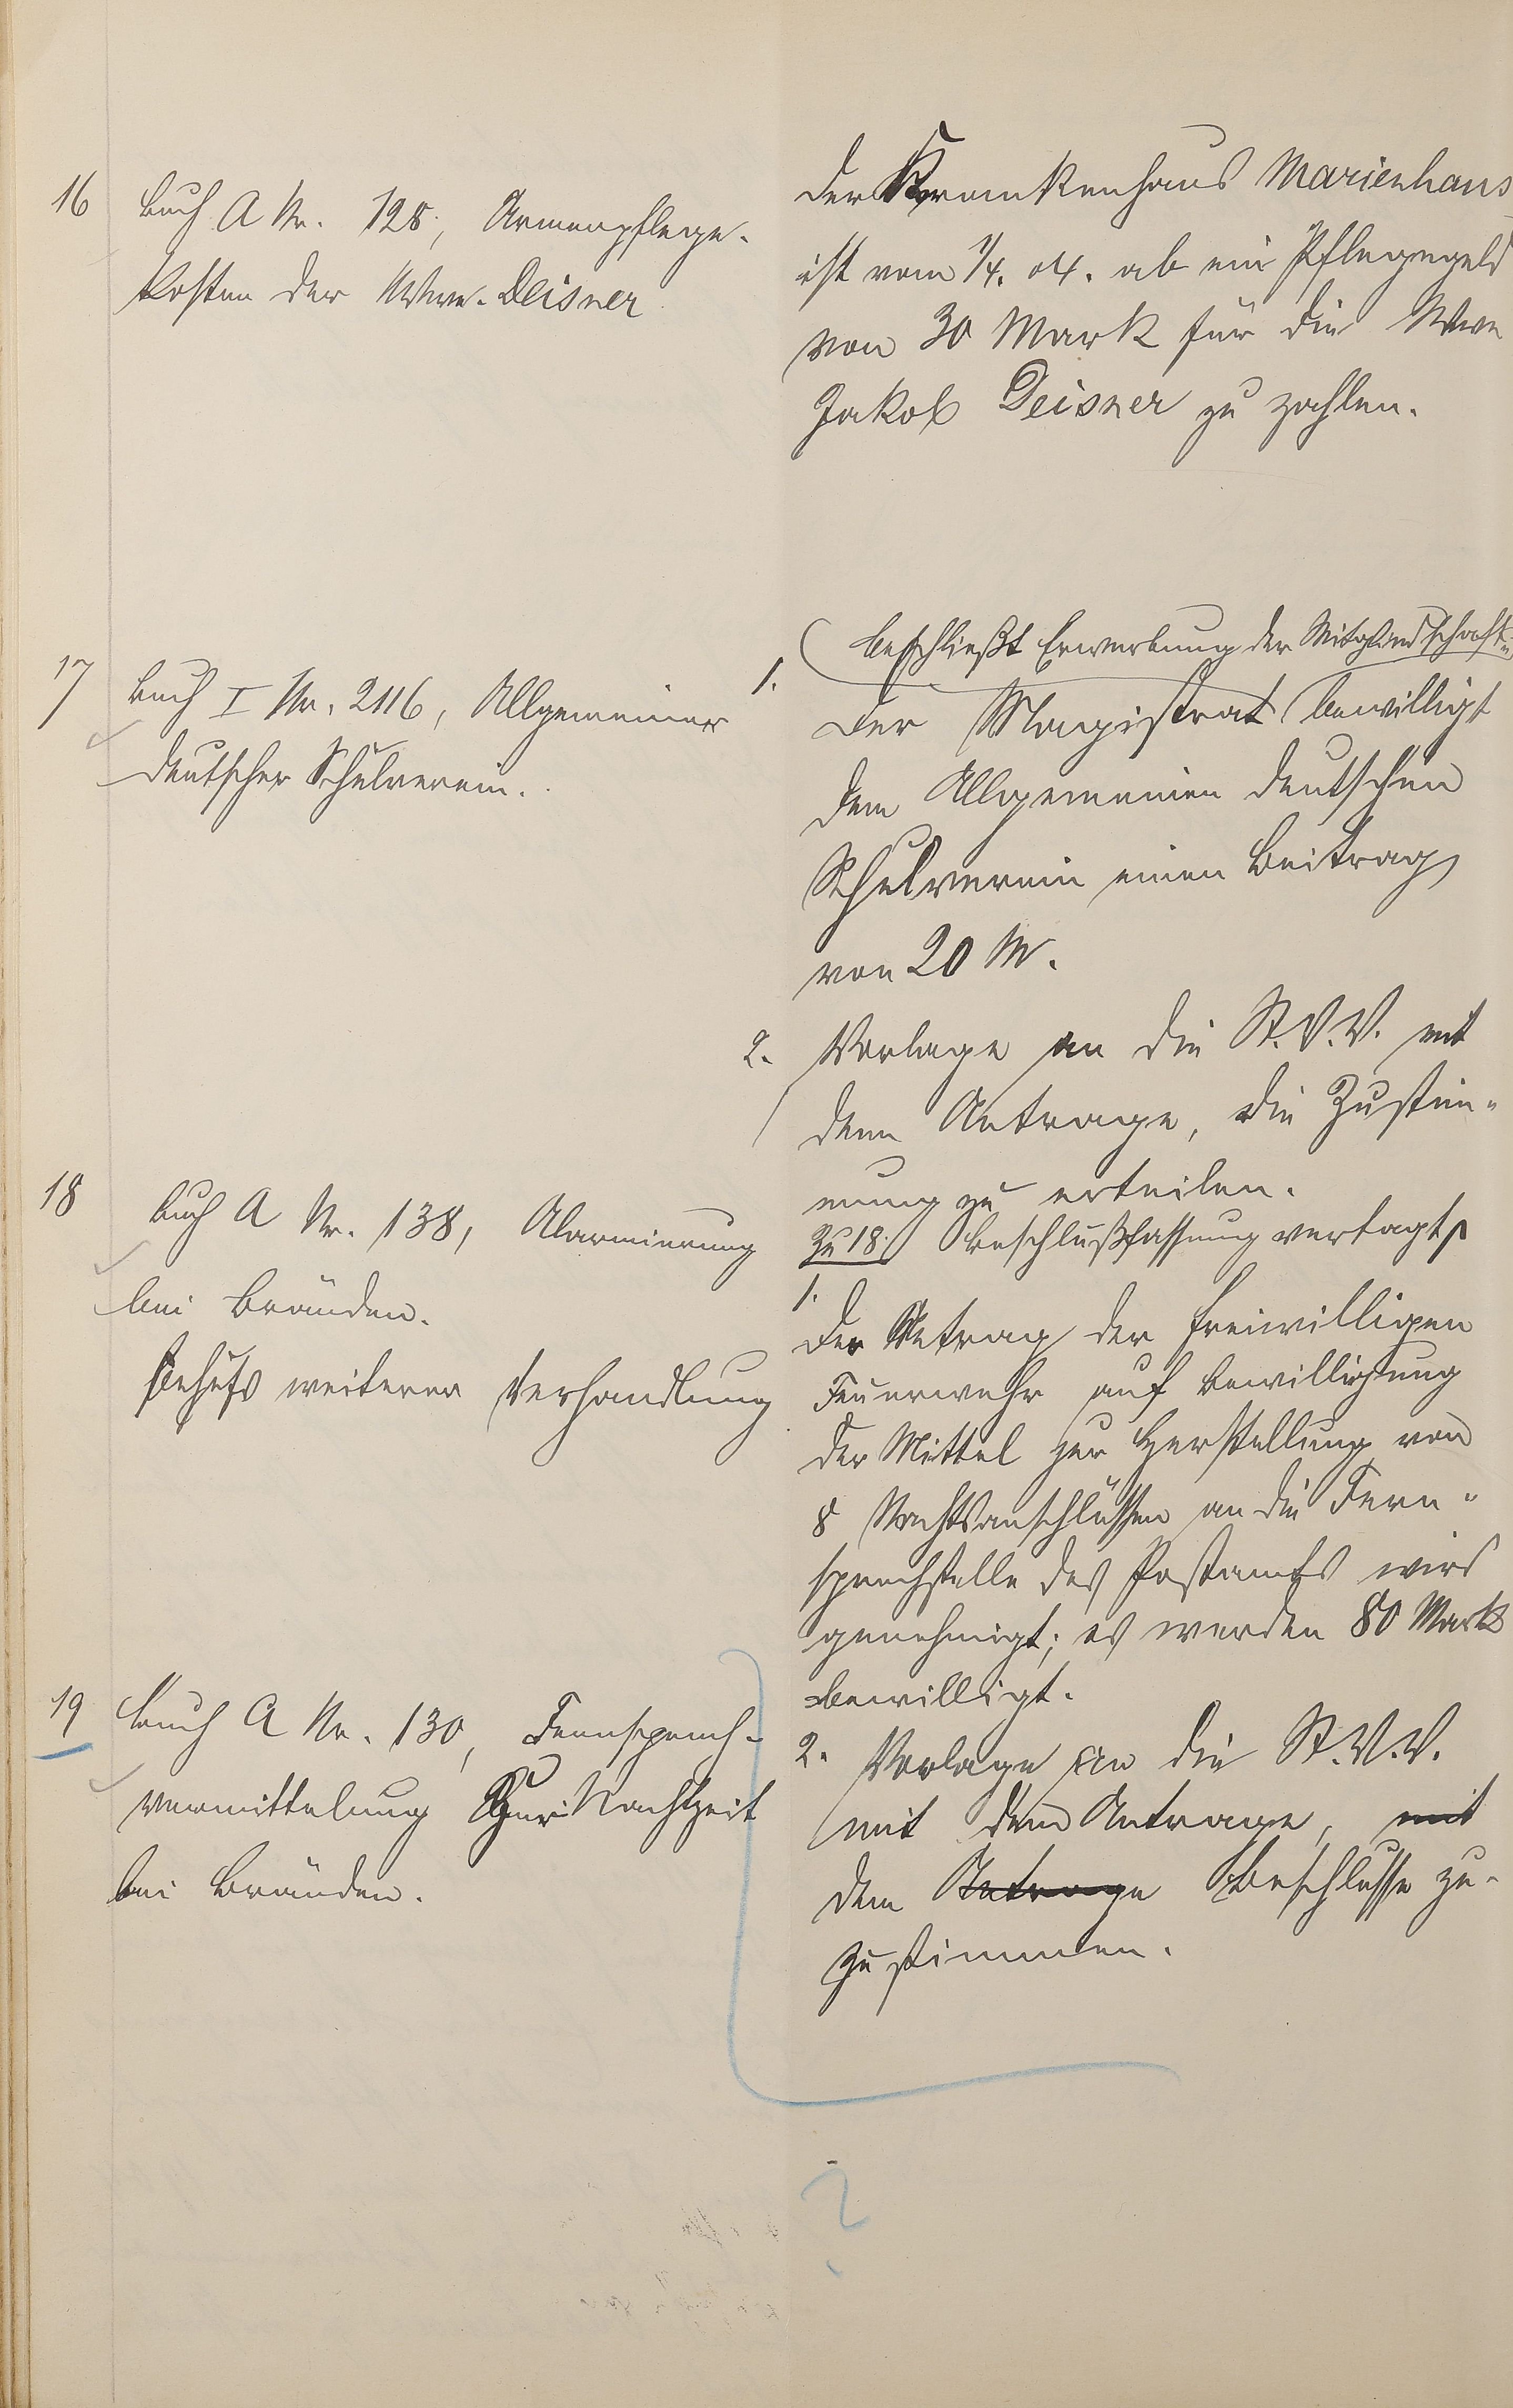 16
Buch A Nr. 128, Armenpflege-
kosten der Wwe. Deisner
Der Krankenhaus Marienhaus
ist vom 1/4. 04. ab ein Pflegegeld
von 30 Mark für die Wwe
Jakob Deisner zu zahlen.
17
Buch I Nr. 2116, Allgemeiner
deutscher Schulverein.
beschließt Erwerbung der Mitgliedschaft u.
1.
Der Magistrat bewilligt
dem Allgemeinen deutschen
Schulverein einen Beitrag
von 20 M.
2. Vorlage an die St.V.V. mit
dem Antrage, die Zustim-
mung zu erteilen.
18
Buch A Nr. 138, Alarmierung
bei Bränden.
Behufs weiterer Verhandlung
Zu 18. Beschlußfassung vertagt
1.
Der Antrag der freiwilligen
Feuerwehr auf Bewilligung
der Mittel zur Herstellung von
8 Nachtsanschlüssen an die Fern-
sprechstelle des Postamts wird
genehmigt; es werden 80 Mark
bewilligt.
2. Vorlage an die St.V.V.
mit dem Antrage, mit
dem Antrage Beschlusse zu-
zustimmen.
19
Buch A Nr. 130, Fernsprech-
vermittelung zur Nachtzeit
bei Bränden.
?